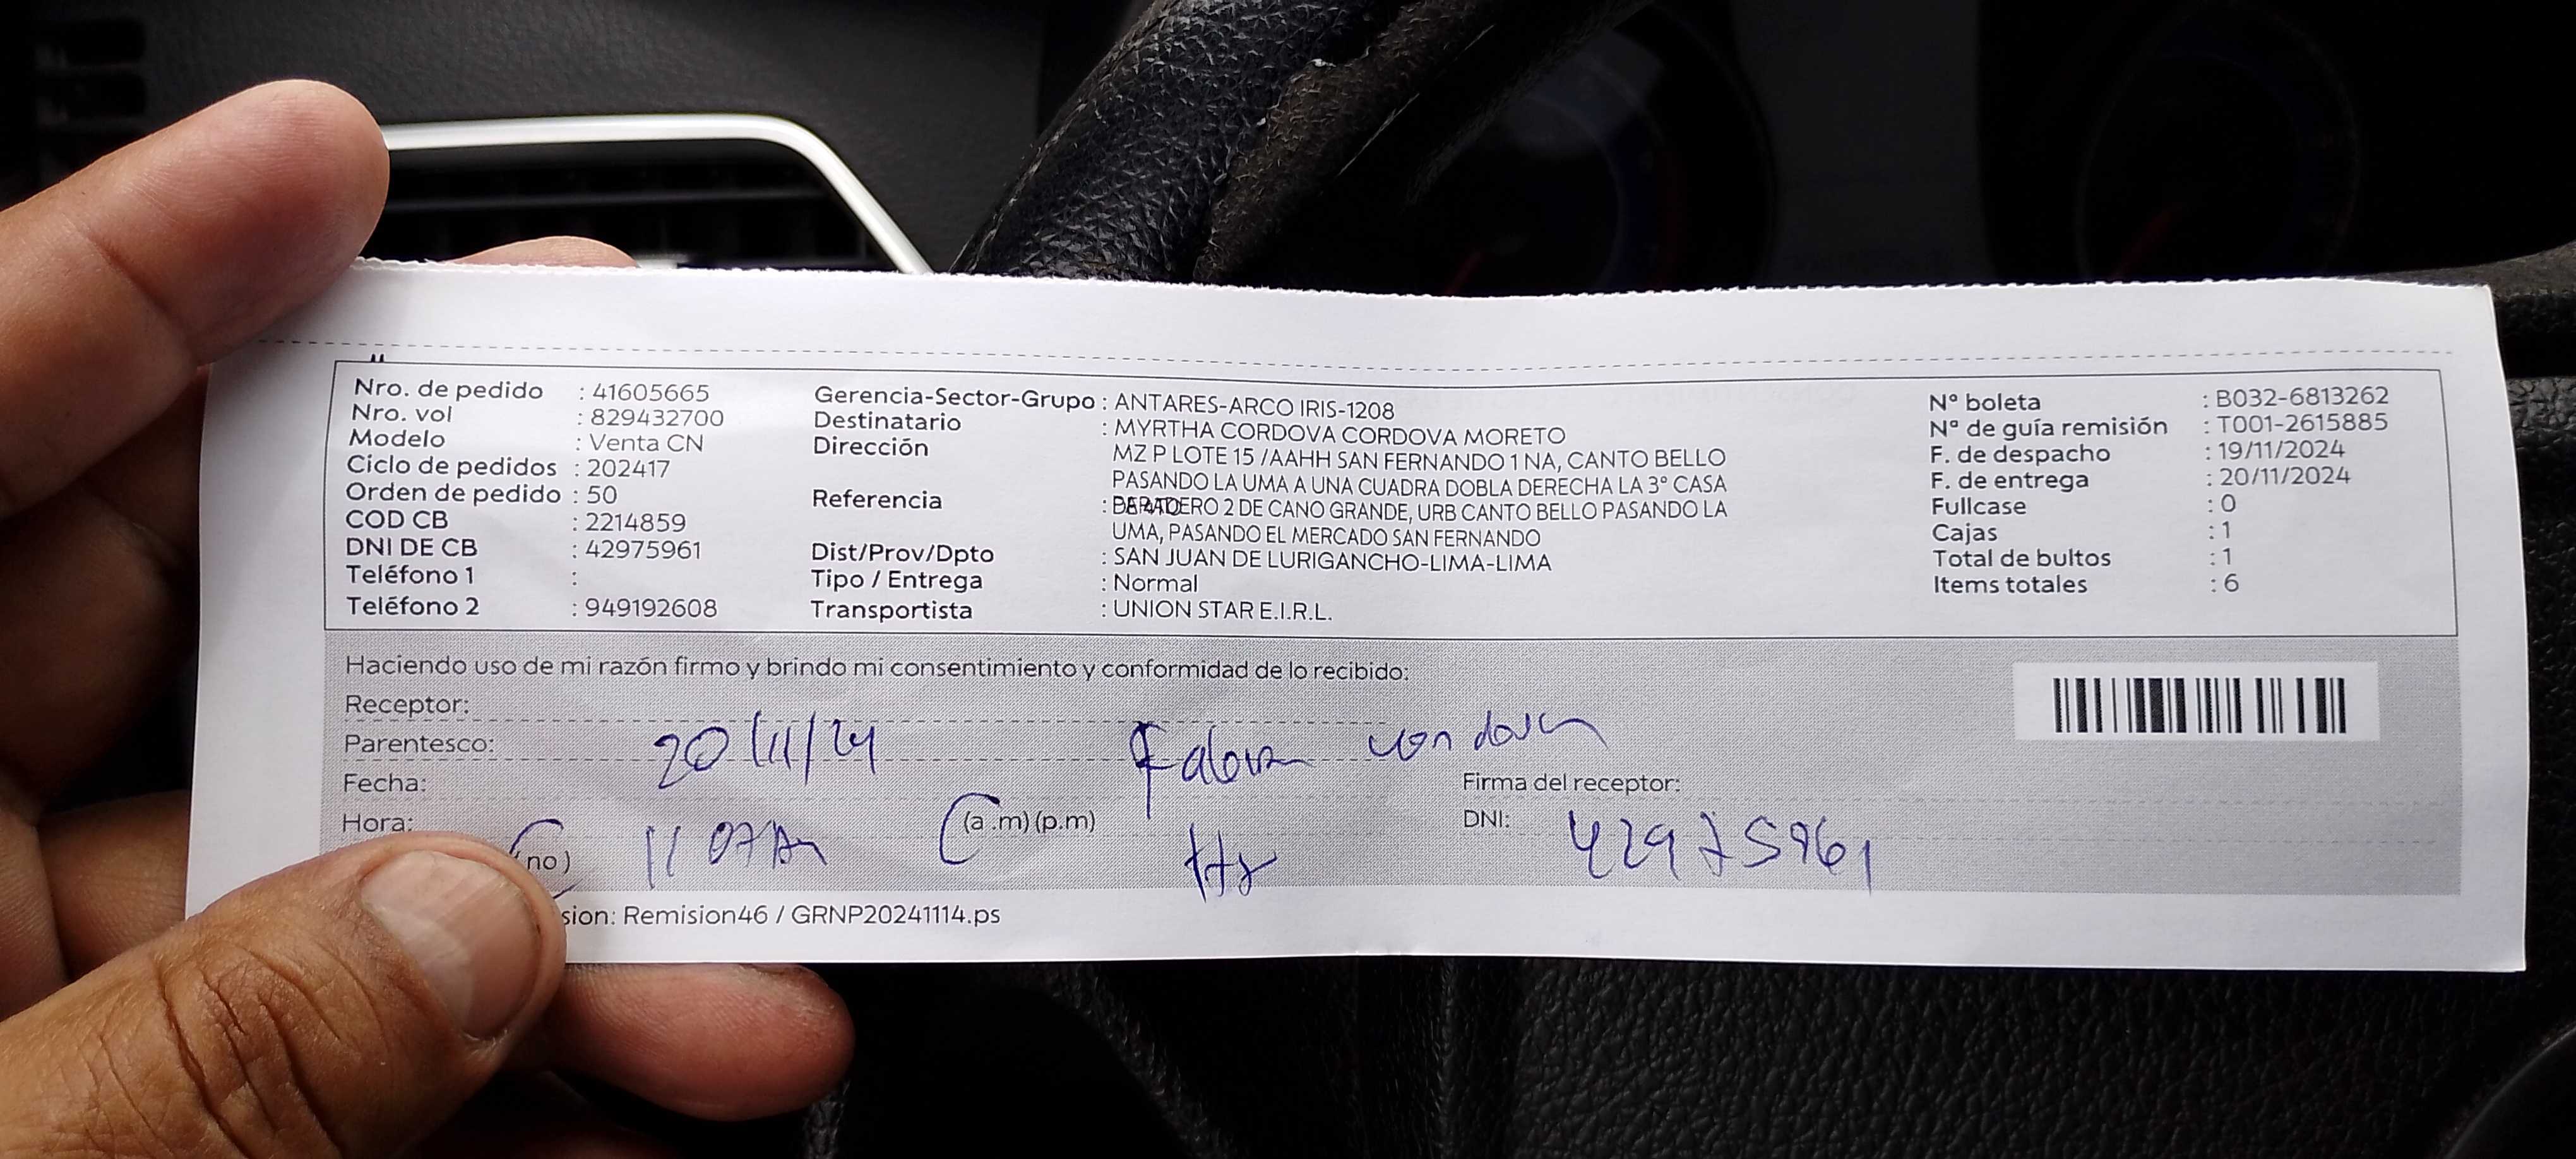 Nro. de pedido : 41605665
Nro. vol : 829432700
Modelo : Venta CN
Ciclo de pedidos : 202417
Orden de pedido : 50
COD CB : 2214859
DNI DE CB : 42975961
Teléfono 1 :
Teléfono 2 : 949192608
Gerencia-Sector-Grupo : ANTARES-ARCO IRIS-1208
Destinatario : MYRTHA CORDOVA CORDOVA MORETO
Dirección MZ P LOTE 15 /AAHH SAN FERNANDO 1 NA, CANTO BELLO
PASANDO LA UMA A UNA CUADRA DOBLA DERECHA LA 3° CASA
Referencia : 2 DE CANO GRANDE, URB CANTO BELLO PASANDO LA
UMA, PASANDO EL MERCADO SAN FERNANDO
Dist/Prov/Dpto : SAN JUAN DE LURIGANCHO-LIMA-LIMA
Tipo / Entrega : Normal
Transportista : UNION STAR E.I.R.L.
Nº boleta : B032-6813262
Nº de guía remisión : T001-2615885
F. de despacho : 19/11/2024
F. de entrega : 20/11/2024
Fullcase : 0
Cajas : 1
Total de bultos : 1
Items totales : 6
Haciendo uso de mi razón firmo y brindo mi consentimiento y conformidad de lo recibido:
Receptor:
Parentesco: 20/11/24
Fecha:
Firma del receptor:
Hora: (a.m)(p.m)
DNI: 42975961
(no) 11 07
sion: Remision46 / GRNP20241114.ps